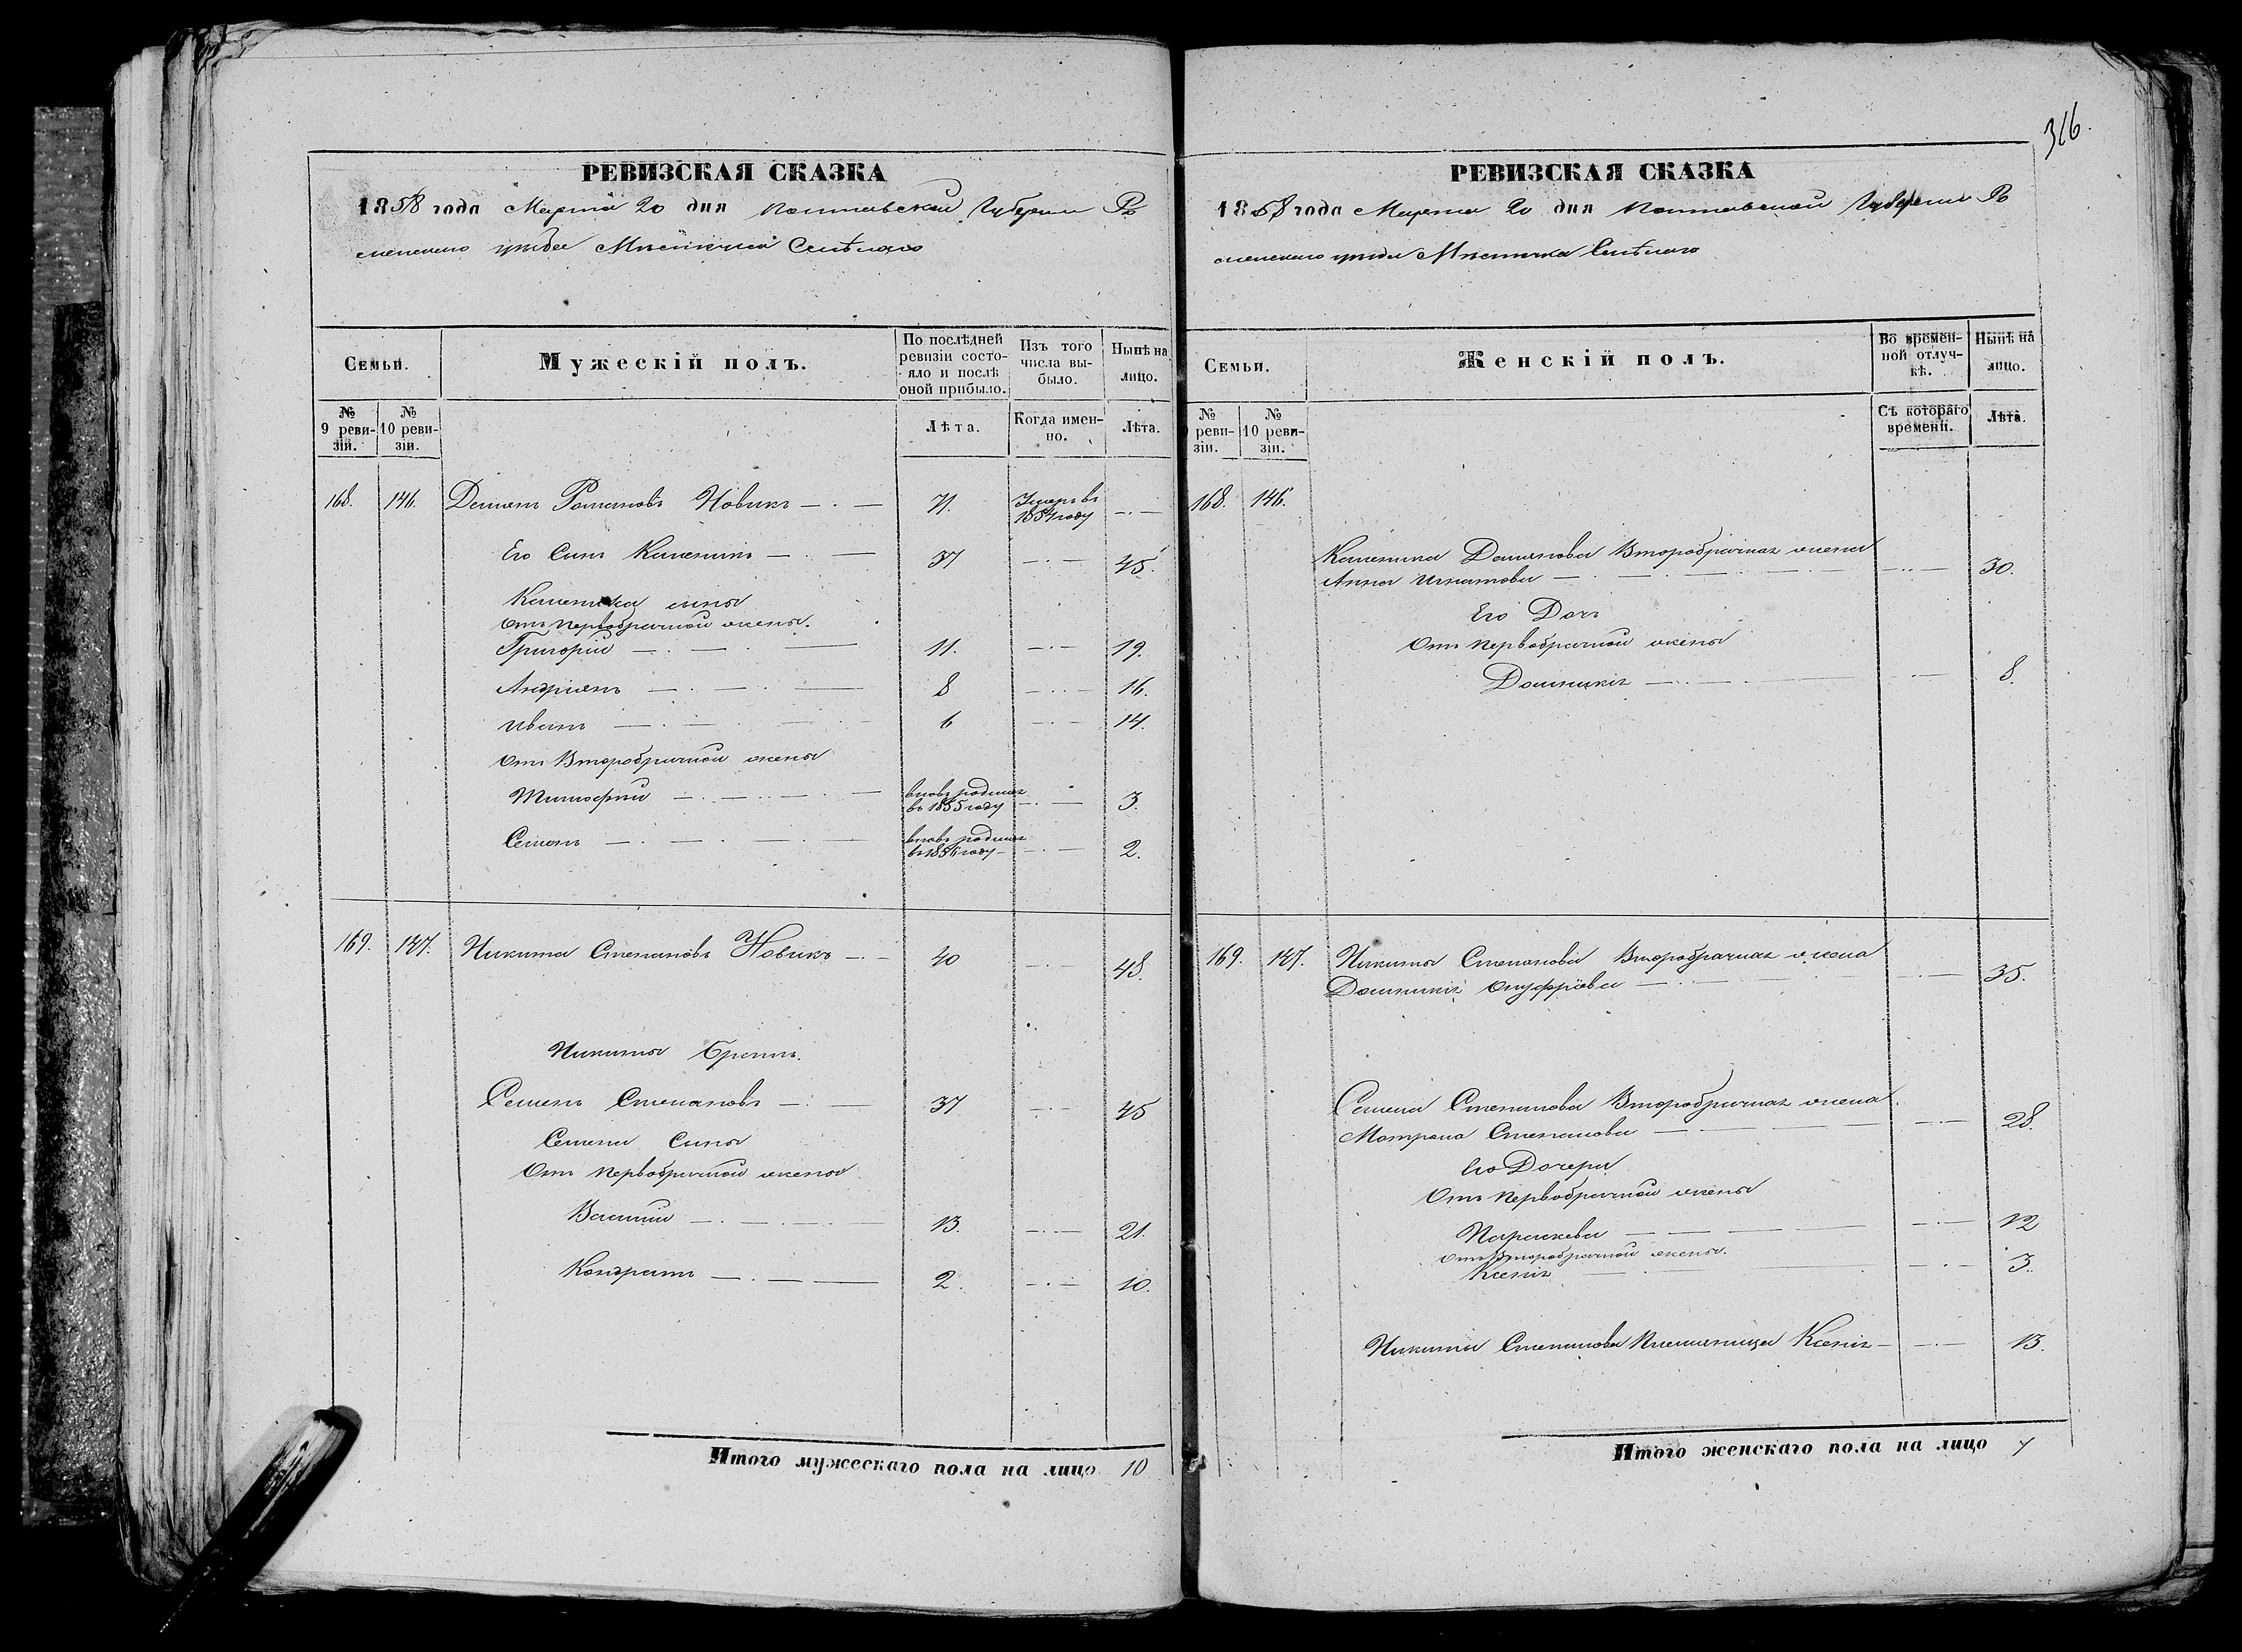 316.
РЕВИЗСКАЯ СКАЗКА
1858 года Марта 20 дня Полтавской Губернии Ро
менскаго уѣзда Мѣстечка Смѣлаго
Семьи.
Мужескій полъ.
По послѣдней ревизіи состояло и послѣ оной прибыло.
Изъ того числа выбыло.
Нынѣ на лицо.
№ 9 ревизіи.
№ 10 ревизіи.
Лѣта.
Когда именно.
Лѣта.
168. 146. Демянъ Романовъ Новикъ 71. Умеръ въ 1854 году
Его Сынъ Каленикъ 37 45.
Каленика сыны
Отъ первобрачной жены.
Григорій 11. 19.
Андріянъ 8 16.
Иванъ 6 14.
Отъ Второбрачной жены
Тимофей вновь родился въ 1855 году 3.
Семенъ вновь родился въ 1856 году 2.
169. 147. Никита Степановъ Новикъ 40 48.
Никиты братъ.
Семенъ Степановъ 37 45
Семена Сыны
Отъ первобрачной жены
Василій 13. 21.
Кондратъ 2. 10.
Итого мужескаго пола на лицо 10
РЕВИЗСКАЯ СКАЗКА
1858 года Марта 20 дня Полтавской Губерніи Ро
менскаго уѣзда Мѣстечка Смѣлаго
Семьи.
Женскій полъ.
Во временной отлучкѣ.
Нынѣ на лицо.
№ ревизіи.
№ 10 ревизіи.
Съ котораго времени.
Лѣта.
168. 146.
Каленика Демянова Второбрачная жена
Анна Игнатова 30.
Его Дочь
Отъ первобрачной жены
Домникія 8.
169. 147. Никиты Степанова Второбрачная жена
Домникія Онуфріева 35.
Семена Степанова Второбрачная жена
Матрона Степанова 28.
Его Дочери
Отъ первобрачной жены
Параскева 12
Отъ Второбрачной жены.
Ксенія 3.
Никиты Степанова племяница Ксенія 13.
Итого женскаго пола на лицо 7